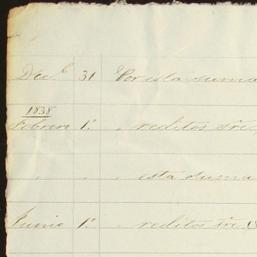 Dice.^e 31 Por esta suma
1838
Febrero 1.° „ reditos
„ „ „ esta suma
Junio 1.° „ reditos